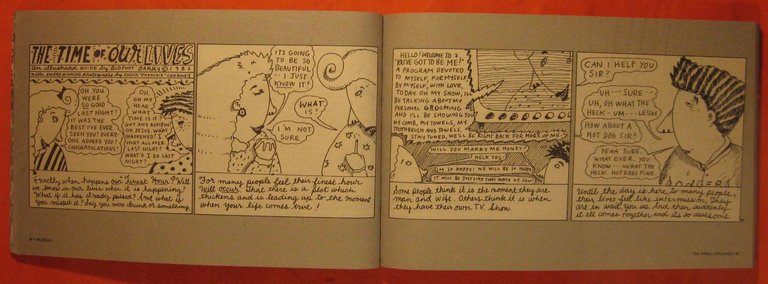 THE TIME OF OUR LIVES
An illustrated GUIDE by BIGFOOT BARRY © 1982
OH YOU
WERE
SO GOOD
LAST NIGHT!
IT WAS THE
BEST I'VE EVER
SEEN YOU! EVERY
ONE ADORED YOU!
CONGRATULATIONS!
OH,
OH MY
HEAD.
WHAT
TIME IS IT?
GOT ANY ASPIRIN?
OH JESUS. WHAT
HAPPENED? I
HURT ALL OVER.
LAST NIGHT?
WHAT'D I DO LAST
NIGHT?
Exactly when happens our Finest Hour? Will
we know in our lives when it is happening?
What if it has already passed? And what if
you missed it? Say you were drunk or something.
ITS GOING
TO BE SO
BEAUTIFUL
I JUST
KNOW IT!
WHAT
IS?
I'M NOT
SURE.
For many people feel their finest hour
will occur. That there is a plot which
thickens and is leading up to the moment
when your life comes true!
HELLO! WELCOME TO
"YOU'VE GOT TO BE ME!"
A PROGRAM DEVOTED
TO MYSELF, FOR MYSELF
BY MYSELF, WITH LOVE.
TODAY ON MY SHOW, I'LL
BE TALKING ABOUT MY
PERSONAL GROOMING
AND I'LL BE SHOWING YOU
MY COMB, MY TOWELS, MY
TOOTHBRUSH AND
STAY TUNED, WE'LL BE RIGHT BACK FOR MORE OF ME!
WILL YOU MARRY ME HONEY?
HECK YES.
I'M SO HAPPY! WE WILL BE SO HAPPY
IT WILL BE
Some people think it is the moment they are
man and wife. Others think it is when
they have their own T.V. Show.
CAN I HELP YOU
SIR?
UH --- SURE --
UH, OH WHAT THE
HECK - UM --- LESSEE
HOW ABOUT A
HOT DOG SIR?
YEAH SURE.
WHAT EVER. YOU
KNOW --- WHAT THE
HECK. HOTDOGS FINE.
Until the day is here, to many people,
their lives feel like intermission. They
are in wait, you see. And then, suddenly
it all comes together and its so awesome